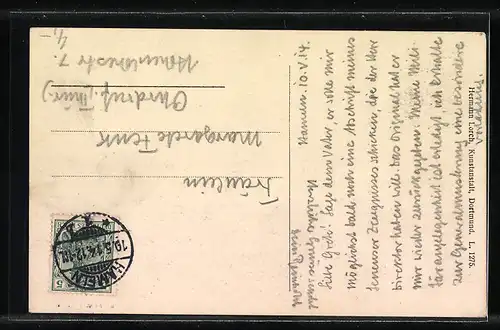 Hamm, 10.V.14.
Liebe Grete! Sage dem Vater, er solle mir
möglichst bald noch eine Abschrift meines
Jenenser Zeugnisses schicken, die der Herr
Direktor haben will. Das Original hat er
mir wieder zurückgegeben. Meine Mili-
tärangelegenheit ist erledigt, ich erhalte
zur Generalmusterung eine besondere
Vorladung.
Herzlichen Gruss
Dein Heinrich
Fräulein
Margarete Fenk
Ohrdruf (Thür.)
Hohenlohestr 7.
1/-
Hermann Lorch, Kunstanstalt, Dortmund. L. 1275.
HAMM
10.5.14.
5